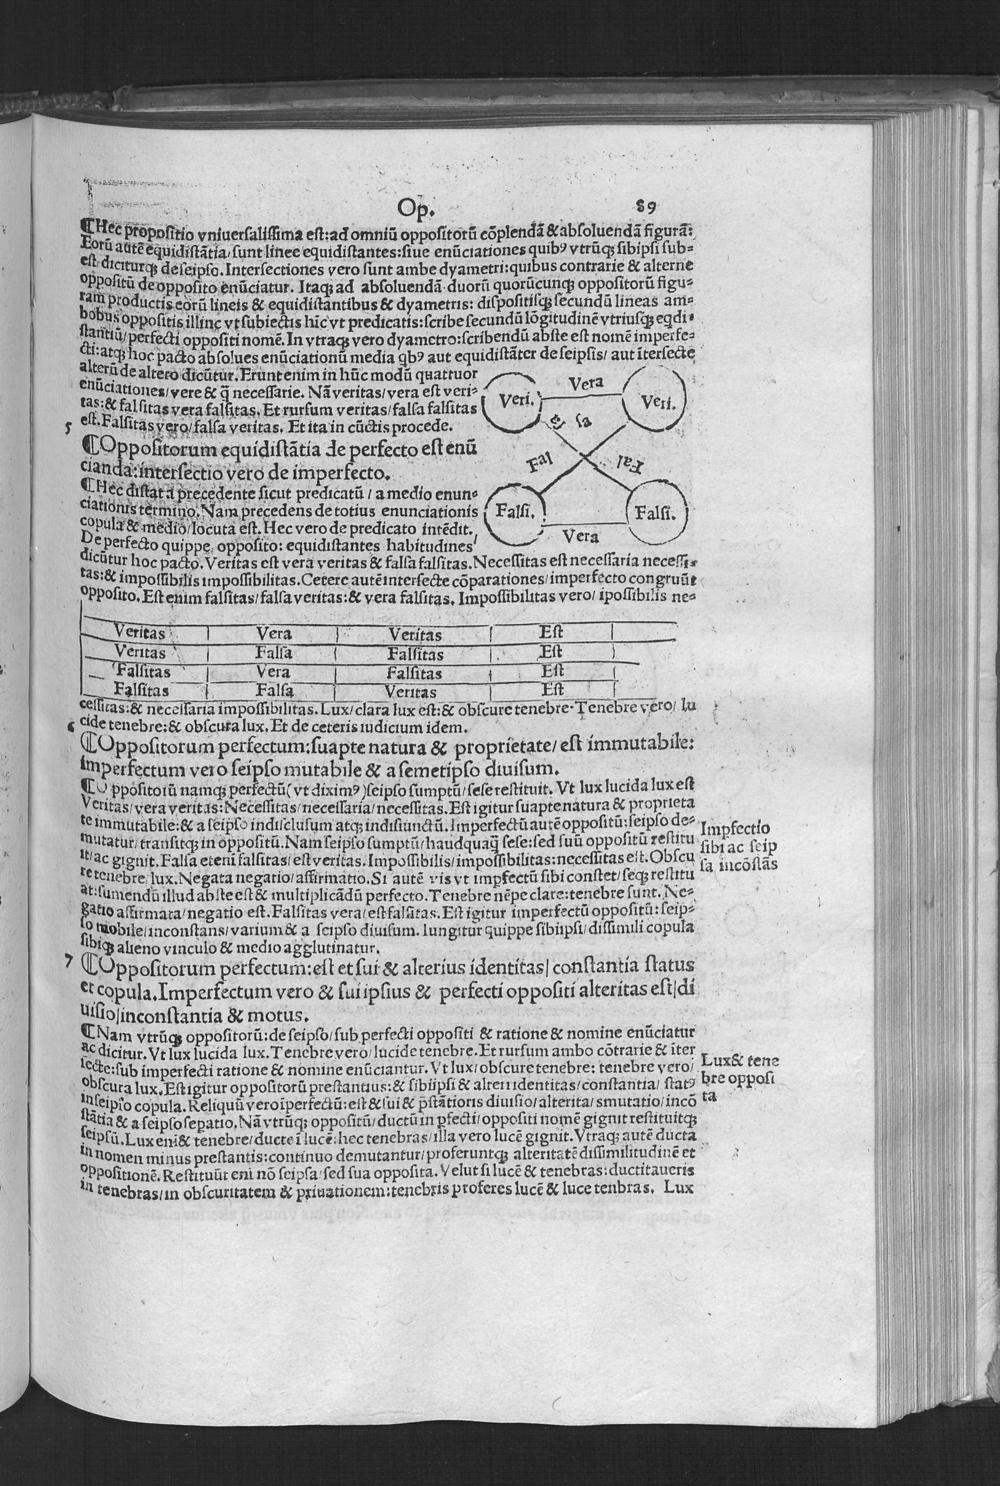 Op. 89
¶Hec propositio vniuersalissima est: ad omniũ oppositorũ cõplendã & absoluendã figurã:
Eorũ autẽ equidistãtia/sunt linee equidistantes: siue enũciationes quibꝰ vtrũqꝫ sibipsi sub-
est diciturqꝫ de seipso. Intersectiones vero sunt ambe dyametri: quibus contrarie & alterne
oppositũ de opposito enũciatur. Itaqꝫ ad absoluendã duorũ quorũcunqꝫ oppositorũ figu-
ram productis eorũ lineis & equidistantibus & dyametris: dispositisqꝫ secundũ lineas am-
bobus oppositis illinc vt subiectis hĩc vt predicatis: scribe secundũ lõgitudinẽ vtriusqꝫ eqdi-
stantiũ/perfecti oppositi nomẽ. In vtraqꝫ vero dyametro: scribendũ abste est nomẽ imperfe-
cti: atqꝫ hoc pacto absolues enũciationũ media qbꝰ aut equidistãter de seipsis/aut ĩtersecte
alterũ de altero dicũtur. Erunt enim in hũc modũ quattuor
enũciationes/vere & q̃ necessarie. Nã veritas/vera est veri-
tas: & falsitas vera falsitas. Et rursum veritas/falsa falsitas
est. Falsitas vero/falsa veritas. Et ita in cũctis procede.
Veri. Vera Veri.
Fal sa Fal sa
Falsi. Vera Falsi.
5
¶Oppositorum equidistãtia de perfecto est enũ
cianda: intersectio vero de imperfecto.
¶Hec distat a precedente sicut predicatũ/a medio enun-
ciationis termino. Nam precedens de totius enunciationis
copula & medio/locuta est. Hec vero de predicato intẽdit.
De perfecto quippe opposito: equidistantes habitudines
dicũtur hoc pacto. Veritas est vera veritas & falsa falsitas. Necessitas est necessaria necessi-
tas: & impossibilis impossibilitas. Cetere autẽ intersecte cõparationes/imperfecto congruũt
opposito. Est enim falsitas/falsa veritas: & vera falsitas. Impossibilitas vero/ipossibilis ne-
Veritas Vera Veritas Est
Veritas Falsa Falsitas Est
Falsitas Vera Falsitas Est
Falsitas Falsa Veritas Est
cessitas: & necessaria impossibilitas. Lux/clara lux est: & obscure tenebre. Tenebre vero/lu
cide tenebre: & obscura lux. Et de ceteris iudicium idem.
6
¶Oppositorum perfectum: suapte natura & proprietate/est immutabile:
imperfectum vero seipso mutabile & a semetipso diuisum.
¶Oppositorũ namqꝫ perfectũ (vt diximꝰ) seipso sumptũ/sese restituit. Vt lux lucida lux est
Veritas/vera veritas: Necessitas/necessaria/necessitas. Est igitur suapte natura & proprieta
te immutabile: & a seipso indisclusum atqꝫ indisiunctũ. Imperfectũ autẽ oppositũ: seipso de-
mutatur/transitqꝫ in oppositũ. Nam seipso sumptũ/haudquaq̃ sese: sed suũ oppositũ restitu
it/ac gignit. Falsa eteni falsitas/est veritas. Impossibilis/impossibilitas: necessitas est. Obscu
re tenebre/lux. Negata negatio/affirmatio. Si autẽ vis vt imꝑfectũ sibi constet/seqꝫ restitu
at: sumendũ illud abste est & multiplicãdũ perfecto. Tenebre nẽpe clare: tenebre sunt. Ne-
gatio affirmata/negatio est. Falsitas vera/est falsitas. Est igitur imperfectũ oppositũ: seip-
so mobile/inconstans/varium & a seipso diuisum. Iungitur quippe sibiipsi/dissimili copula
sibiqꝫ alieno vinculo & medio agglutinatur.
Impfectio
sibi ac seip
sa incõstãs
7
¶Oppositorum perfectum: est et sui & alterius identitas/constantia status
et copula. Imperfectum vero & sui ipsius & perfecti oppositi alteritas est/di
uisio/inconstantia & motus.
¶Nam vtrũqꝫ oppositorũ: de seipso/sub perfecti oppositi & ratione & nomine enũciatur
ac dicitur. Vt lux lucida lux. Tenebre vero/lucide tenebre. Et rursum ambo cõtrarie & ĩter
secte: sub imperfecti ratione & nomine enũciantur. Vt lux/obscure tenebre: tenebre vero/
obscura lux. Est igitur oppositorũ prestantius: & sibiipsi & alteri identitas/constantia/statꝰ
in seipso copula. Reliquũ vero ĩperfectũ: est & sui & p̃stãtioris diuisio/alterita/smutatio/incõ
stãtia & a seipso sepatio. Nã vtrũqꝫ oppositũ/ductũ in ꝑfecti/oppositi nomẽ gignit restituitqꝫ
seipsũ. Lux eni & tenebre/ducte ĩ lucẽ: hec tenebras/illa vero lucẽ gignit. Vtraqꝫ autẽ ducta
in nomen minus prestantis: continuo demutantur/proferuntqꝫ alteritatẽ dissimilitudinẽ et
oppositionẽ. Restituũt eni nõ seipsa/sed sua opposita. Velut si lucẽ & tenebras: ductitaueris
in tenebras/in obscuritatem & priuationem: tenebris proferes lucẽ & luce tenbras. Lux
Lux & tene
bre opposi
ta